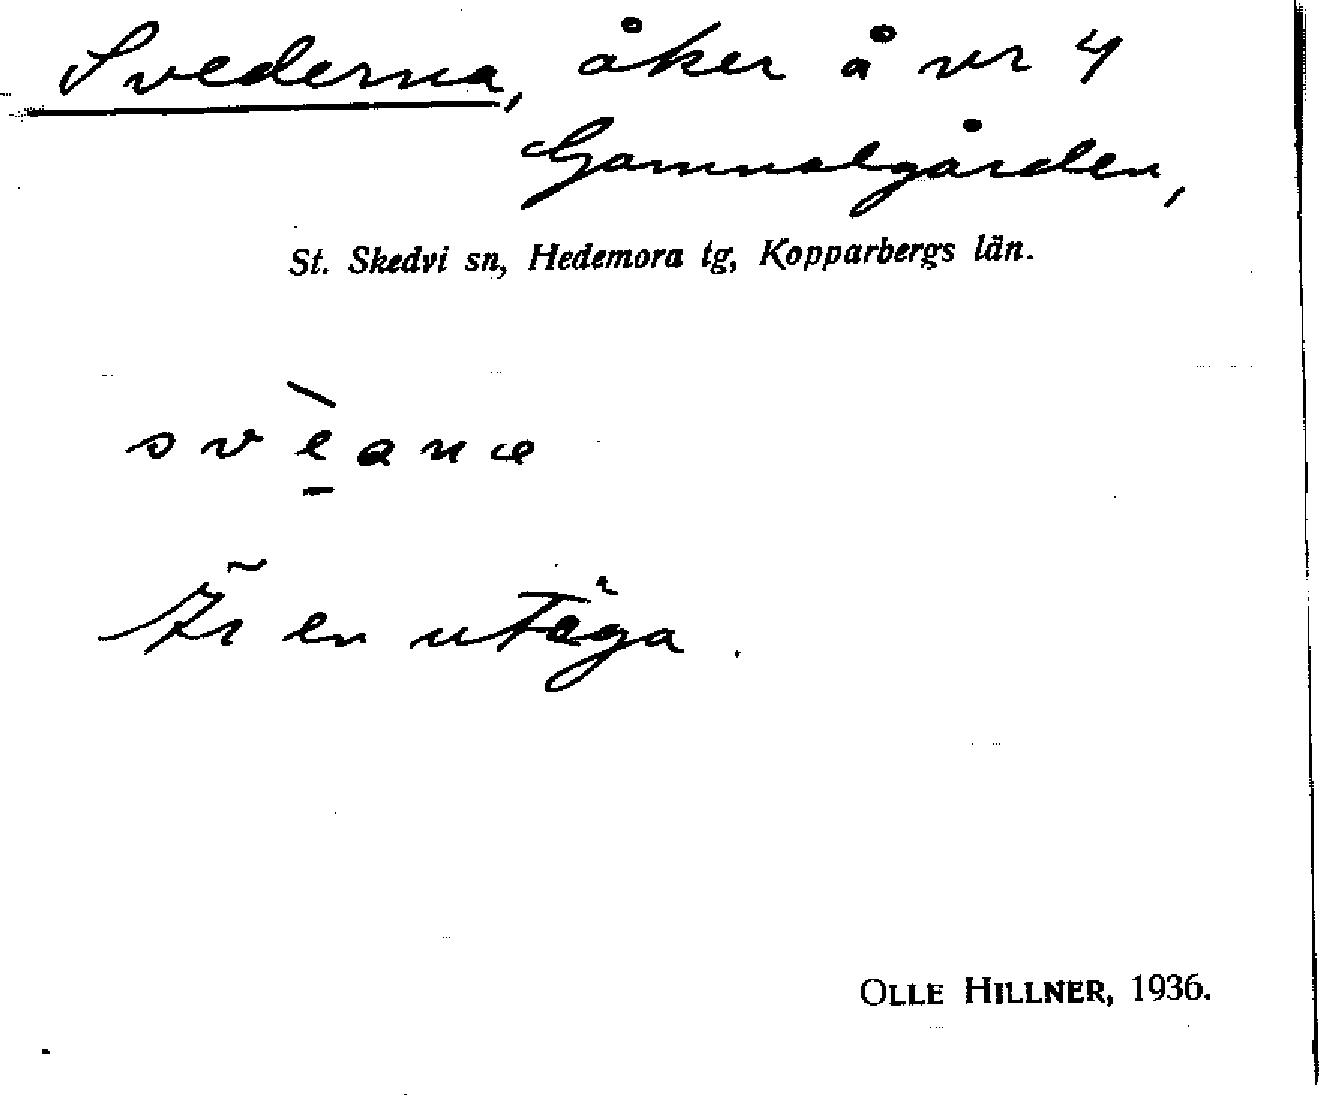 Svederna, åker å nr 4
Gammelgården,
St. Skedvi sn, Hedemora tg, Kopparbergs län.
svè̱anæ
Är en utäga.
OLLE HILLNER, 1936.